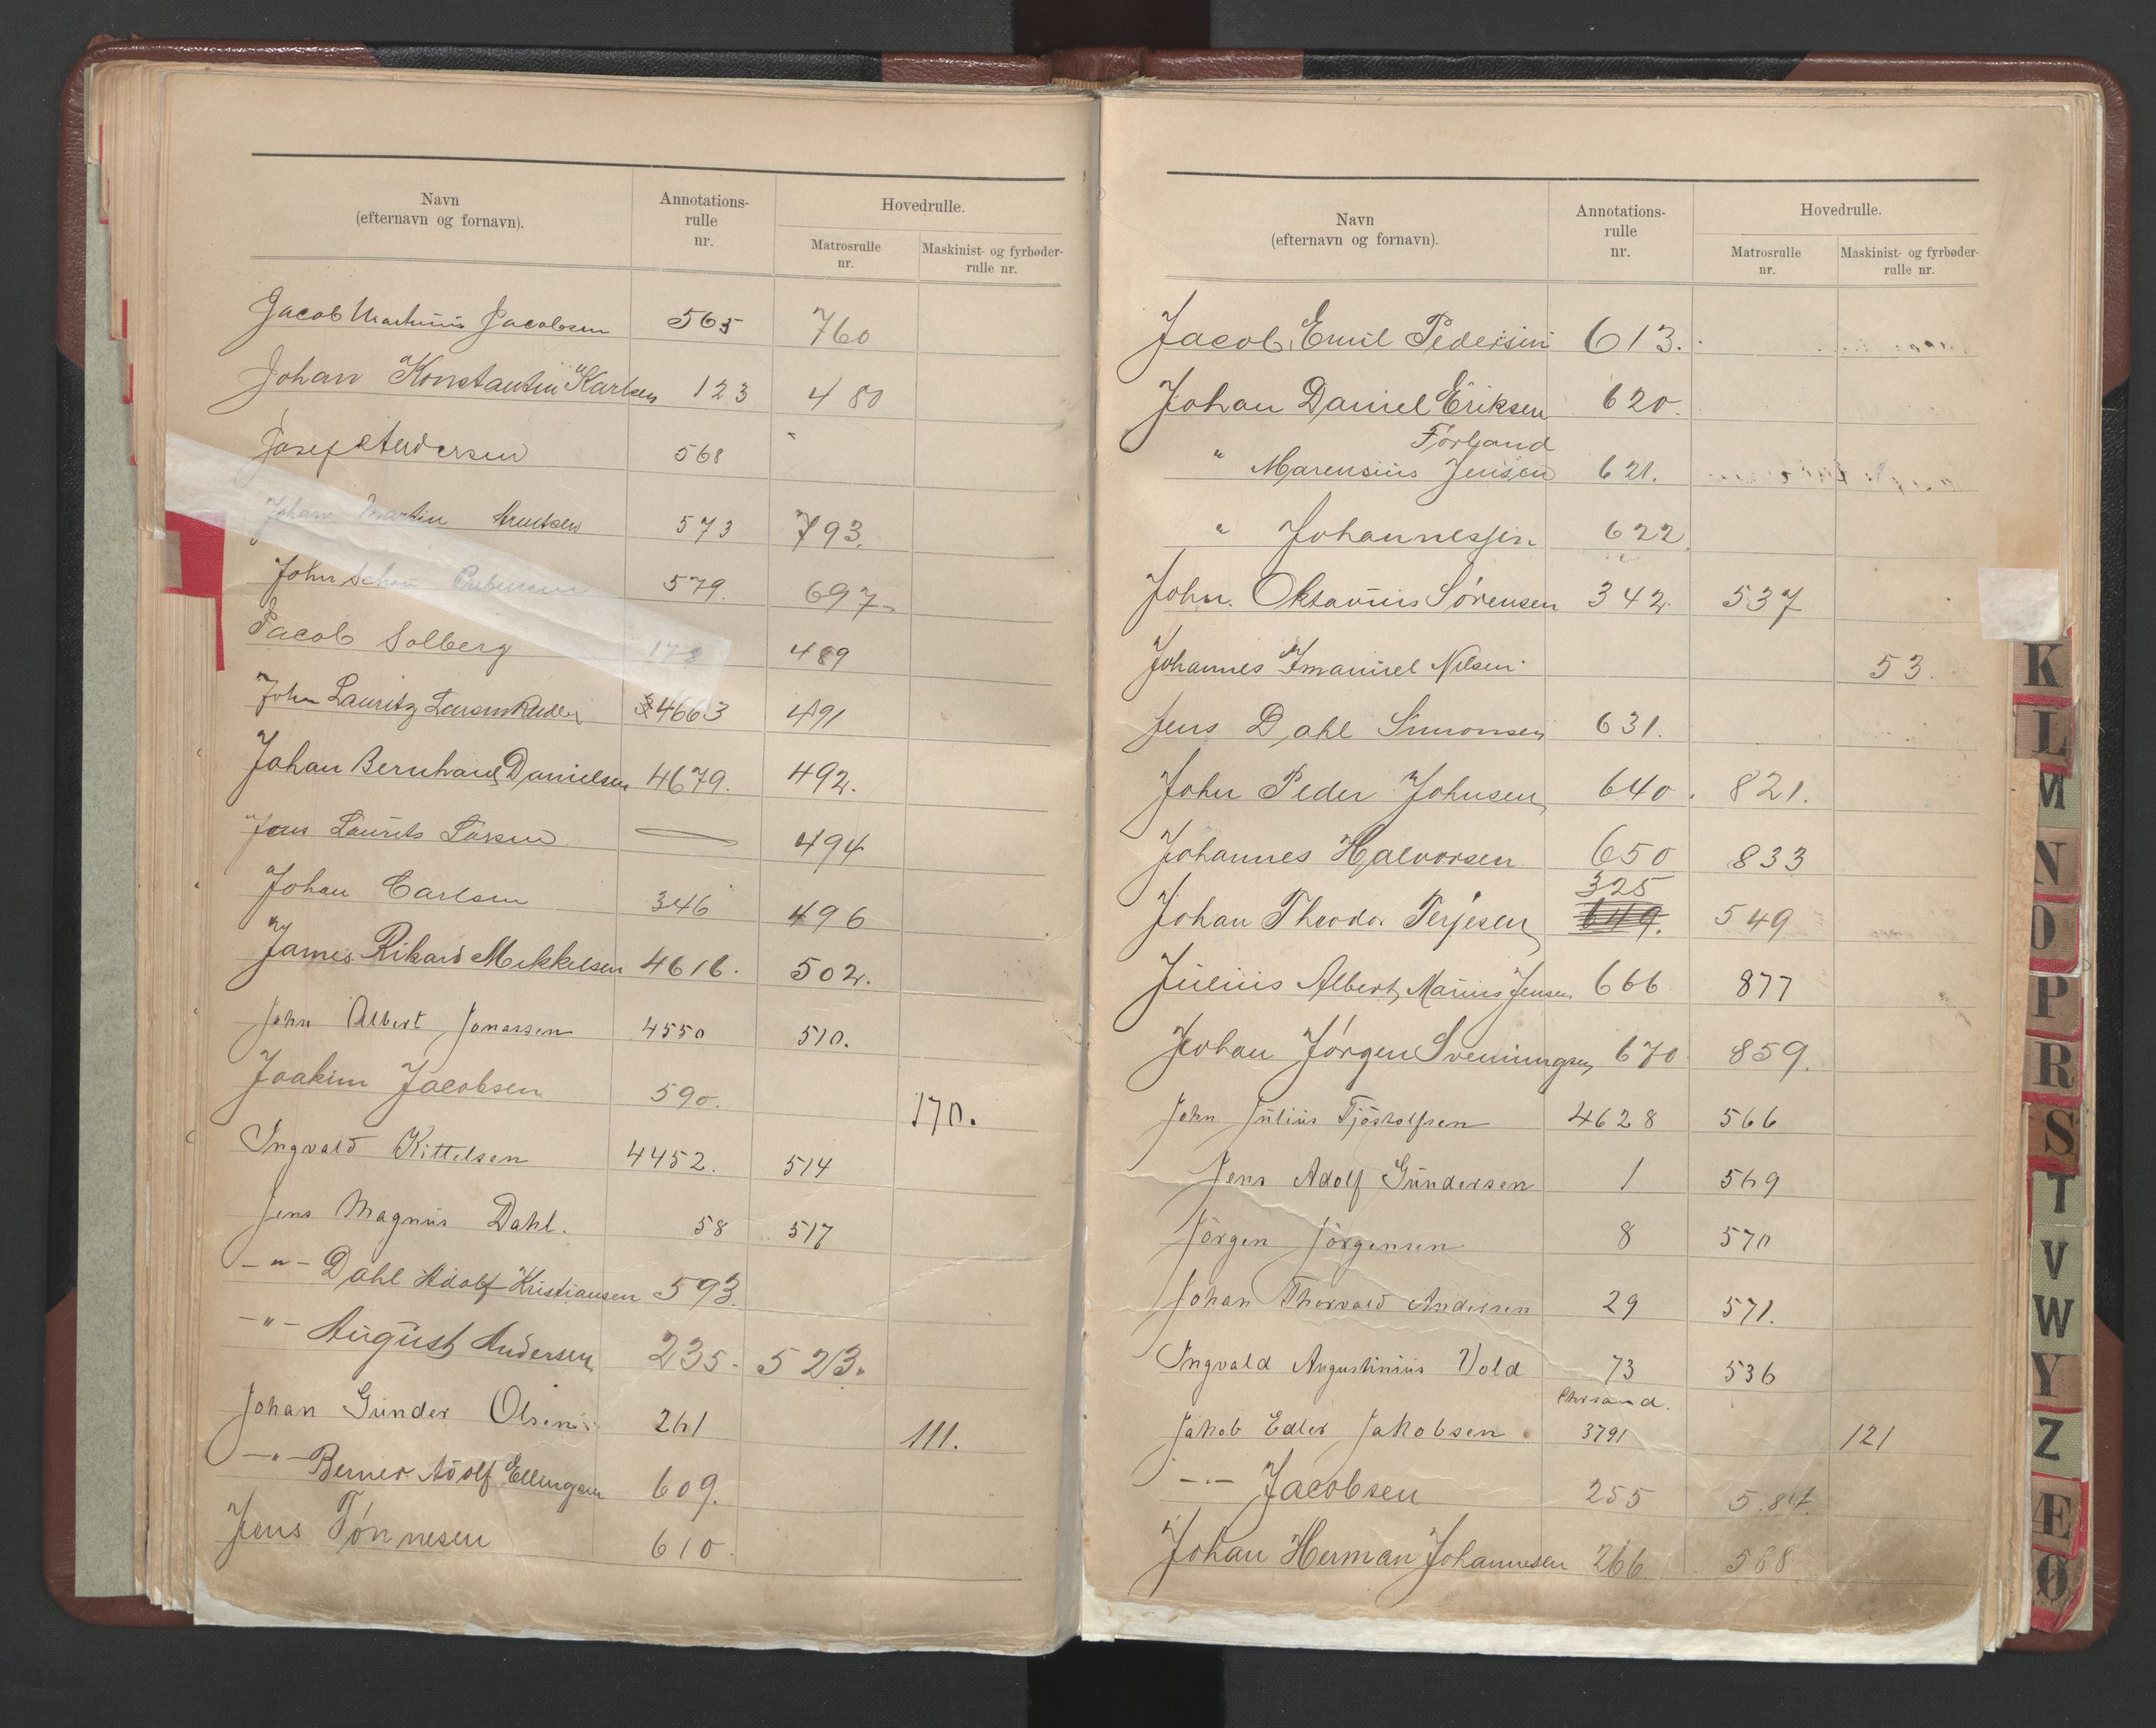 Navn
(efternavn og fornavn).
Annotations-
rulle
nr.
Hovedrulle.
Matrosrulle
nr.
Maskinist- og fyrbøder-
rulle nr.
Jacob Martinius Jacobsen 565 760
Johan Konstantin Karlsen 123 480
Josef Andersen 568 "
Johan Martin Knutsen 573 793.
John 579. 697
Jacob Solberg 178 489
John Lauritz Larsen 4663 491
Johan Bernhard Danielsen 4679. 492.
Jens Laurits Larsen — 494
Johan Carlsen 346 496
James Rikard Mikkelsen 4616. 502.
John Albert Jonassen 4550 510.
Joakim Jacobsen 590. 170.
Ingvald Kittelsen 4452. 514
Jens Magnus Dahl. 58 517
-"- Dahl Adolf Kristiansen 593.
-"- August Andersen 235. 523.
Johan Gunder Olsen 261 111.
-"- Berner Adolf Ellingsen 609.
Jens Tönnesen 610.
Navn
(efternavn og fornavn).
Annotations-
rulle
nr.
Hovedrulle.
Matrosrulle
nr.
Maskinist- og fyrbøder-
rulle nr.
Jacob Emil Pedersen 613.
Johan Daniel Eriksen 620.
Förland
" Marensius Jensen 621.
" Johannessen 622
John Oktavius Sørensen 342 537
Johannes Imanuel Nilsen 53.
Jens Dahl Simonsen 631.
John Peder Johnsen 640. 821.
Johannes Halvorsen 650 833
325
Johan Theodor Terjesen 649. 549
Julius Albert Marius Jensen 666 877
Johan Jörgen Sveningsen 670 859.
John Julius Tjöstolfsen 4628 566
Jens Adolf Gundersen 1 569
Jörgen Jörgensen 8 570
Johan Thorvald Andersen 29 571.
Ingvald Augustinius Vold 73 536
Chrsand.
Jakob Edler Jakobsen 3791 121
-"- Jacobsen 255 584.
Johan Herman Johannesen 266 588
K
L
M
N
O
P
R
S
T
V
W
Y
Z
Æ
Ø